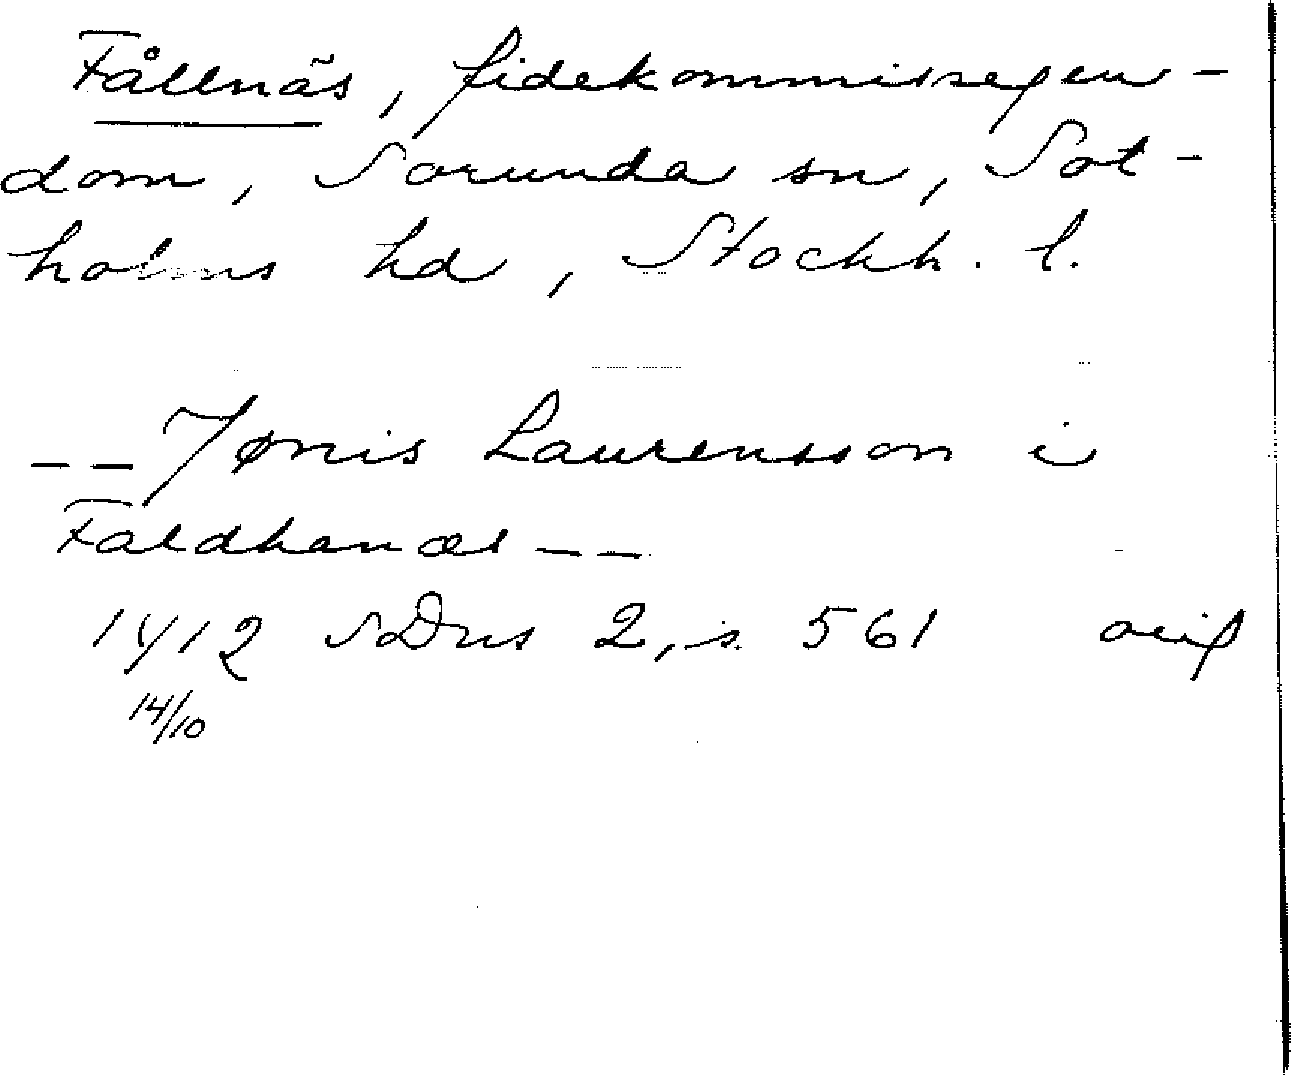 Fållnäs, fidekommissegen-
dom, Sorunda sn, Sot-
holms hd, Stockh. l.
-- Jønis Laurensson i
Faldhanæs --
1412 SDns 2, s. 561 orig
14/10